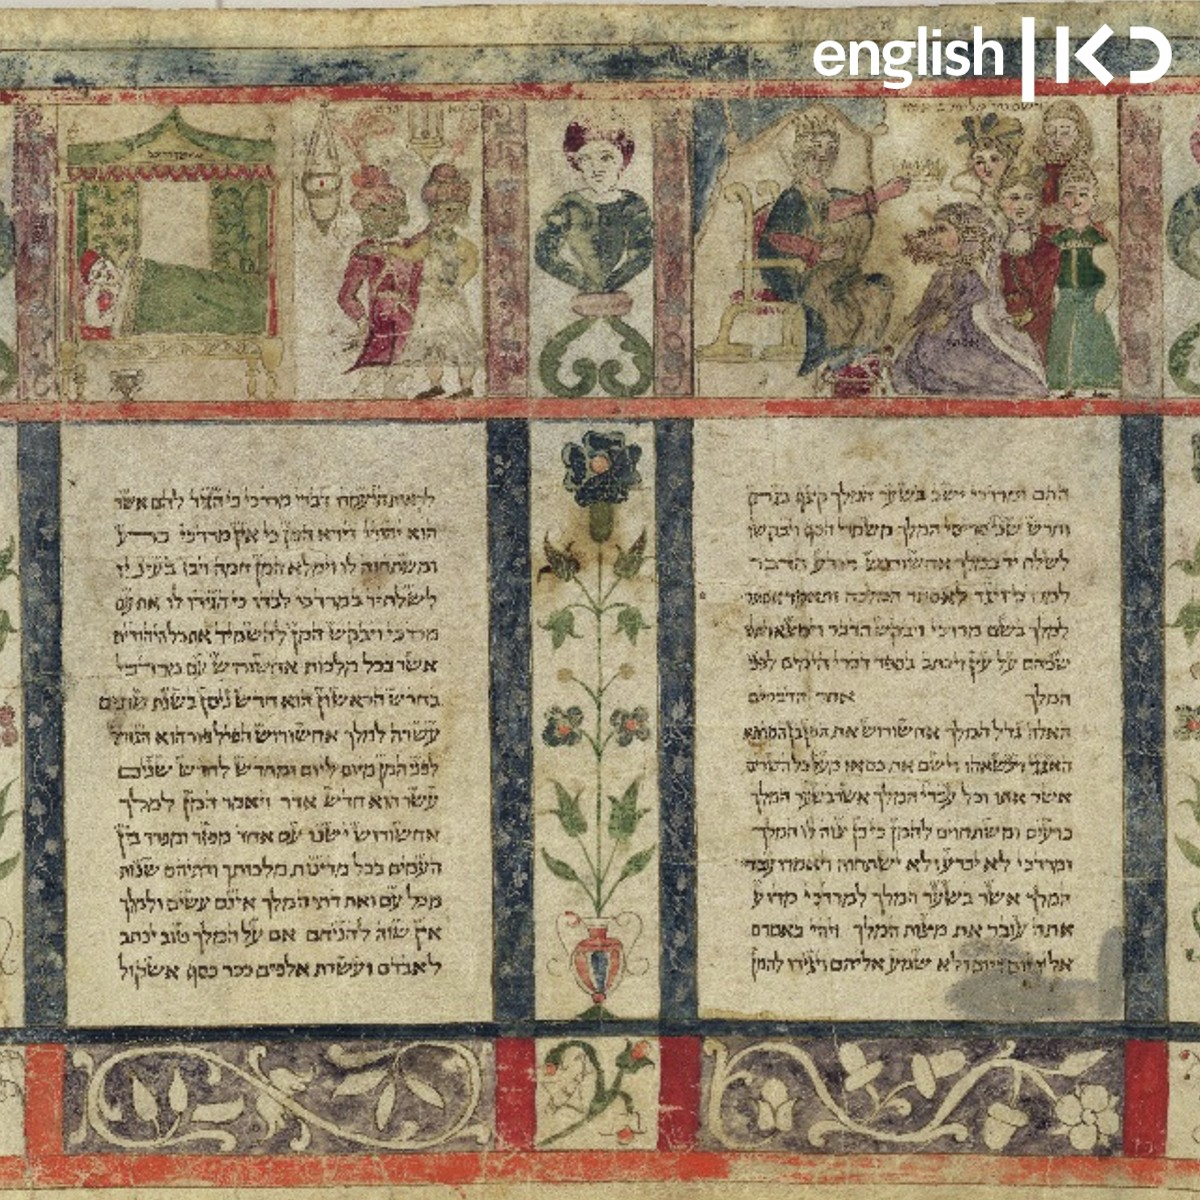 english | KD
ההם ומרדכי ישב בשער המלך קצף בגתן
ותרש שני סריסי המלך משמרי הסף ויבקשו
לשלח יד במלך אחשורוש ויודע הדבר
למרדכי ויגד לאסתר המלכה ותאמר אסתר
למלך בשם מרדכי ויבקש הדבר וימצא ויתלו
שניהם על עץ ויכתב בספר דברי הימים לפני
המלך אחר הדברים
האלה גדל המלך אחשורוש את המן בן המדתא
האגגי וינשאהו וישם את כסאו מעל כל השרים
אשר אתו וכל עבדי המלך אשר בשער המלך
כרעים ומשתחוים להמן כי כן צוה לו המלך
ומרדכי לא יכרע ולא ישתחוה ויאמרו עבדי
המלך אשר בשער המלך למרדכי מדוע
אתה עובר את מצות המלך ויהי באמרם
אליו יום ויום ולא שמע אליהם ויגידו להמן
לראות היעמדו דברי מרדכי כי הגיד להם אשר
הוא יהודי וירא המן כי אין מרדכי כרע
ומשתחוה לו וימלא המן חמה ויבז בעיניו
לשלח יד במרדכי לבדו כי הגידו לו את עם
מרדכי ויבקש המן להשמיד את כל היהודים
אשר בכל מלכות אחשורוש עם מרדכי
בחדש הראשון הוא חדש ניסן בשנת שתים
עשרה למלך אחשורוש הפיל פור הוא הגורל
לפני המן מיום ליום ומחדש לחדש שנים
עשר הוא חדש אדר ויאמר המן למלך
אחשורוש ישנו עם אחד מפזר ומפרד בין
העמים בכל מדינות מלכותך ודתיהם שנות
מכל עם ואת דתי המלך אינם עשים ולמלך
אין שוה להניחם אם על המלך טוב יכתב
לאבדם ועשרת אלפים ככר כסף אשקול